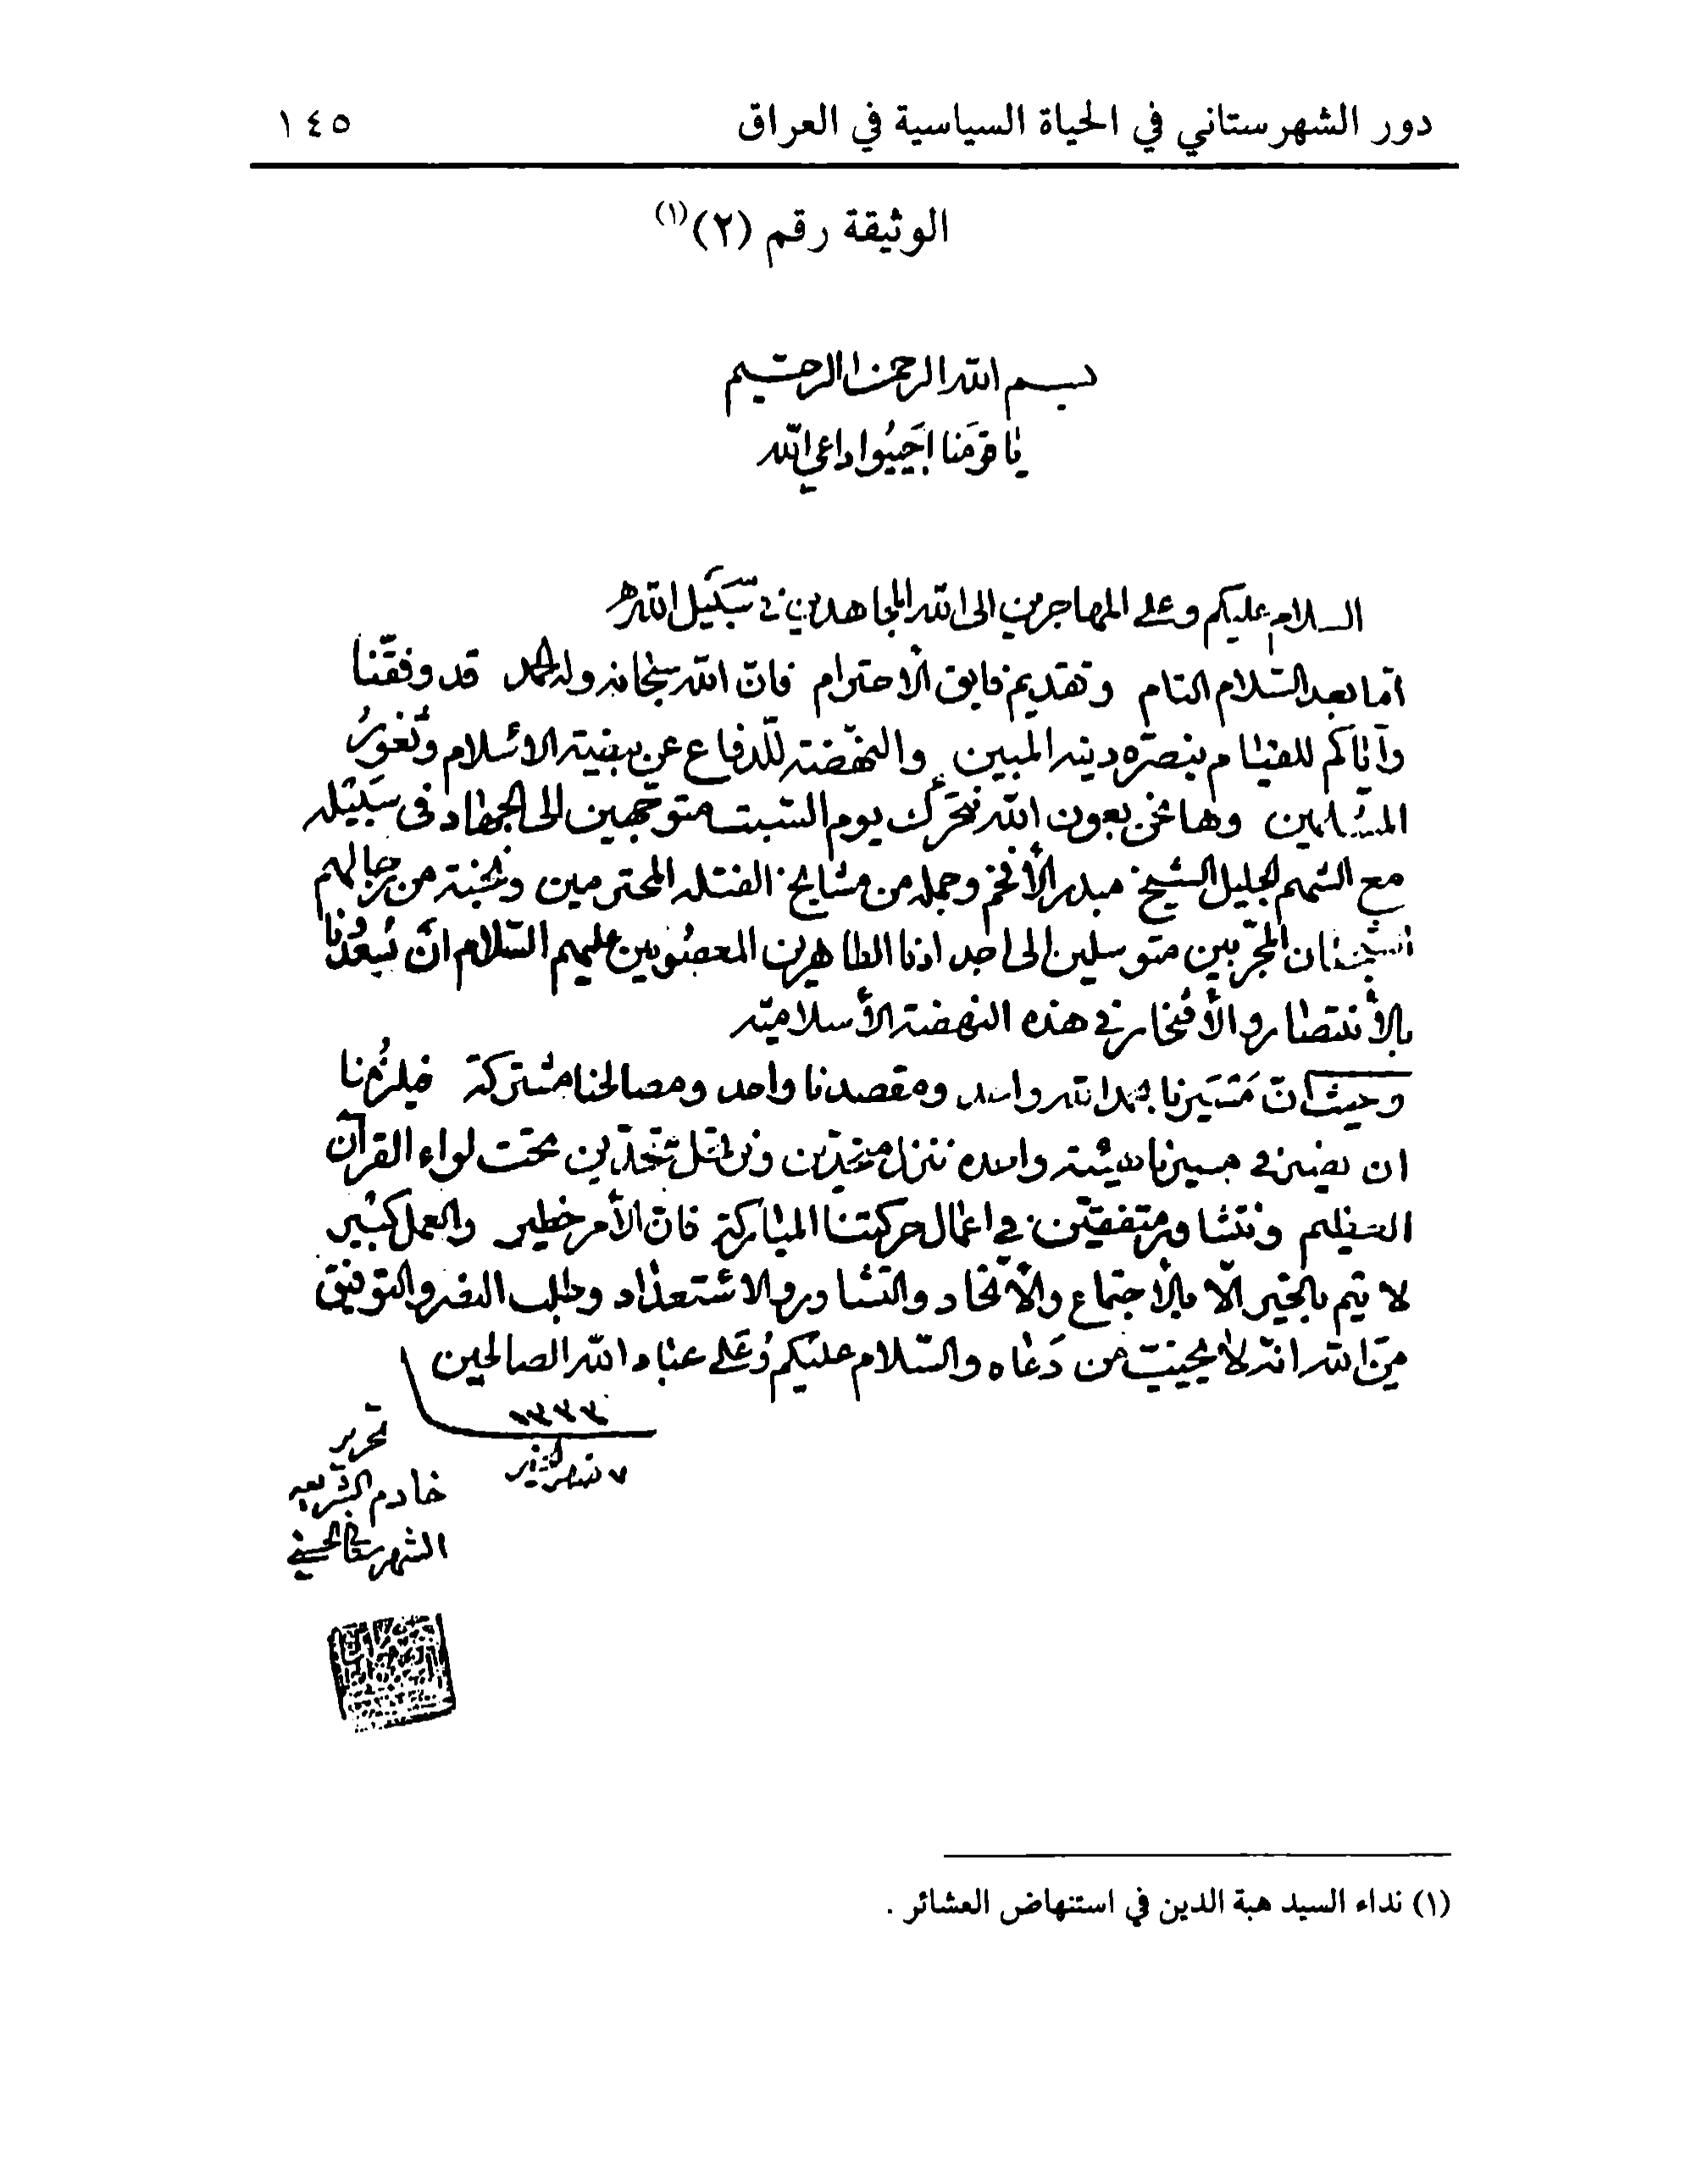 دور الشهرستاني في الحياة السياسية في العراق ١٤٥
الوثيقة رقم (٢)(١)
بسم الله الرحمن الرحيم
يا قومَنا اجيبُوا داعي الله
السلام عليكم وعلى المهاجرين الى الله المجاهدين في سبيل الله
امّا بعد السّلام التام وتقديم فايق الاحترام فانّ الله سبحانه وله الحمد قد وفقّنا
وايّاكم للقيام بنصرة دينه المبين والنهّضة للدفاع عن بيضة الاسلام وثغور
المسلمين وها نحن بعون الله نتحرّك يوم السّبت متوجّهين الى الجهاد فى سبيله
مع الشهم الجليل الشيخ مبدر الأفخم وجملة من مشايخ الفتله المحترمين ونخبة من رجالهم
الشجعان المجرّبين متوسلين الى اجدادنا الطاهرين المعصومين عليهم السّلام ان يُسعدُنا
بالأنتصار والأفتخار في هذه النهضة الأسلاميّة
وحيث انّ مَسَيرنا بحمد الله واحد ومقصدنا واحد ومصالحنا مشتركة فيلزمُنا
ان نصير في مسيرنا هيئة واحده ننزل متحدّين ونرتحل متّحدين تحت لواء القرآن
العظيم ونتشاور متفقين في اعمال حركتنا المباركة فانّ الأمر خطير والعمل كبير
لا يتم بالخير الّا بالأجتماع والأتّحاد والتشاور والاستعداد وطلب النصر والتوفيق
مِنَ الله انّه لا يخيّبُ مَن دَعاه والسّلام عليكم وَعَلى عباد الله الصالحين
١٣٣٣
٧ صفر الخير
تحرير
خادم الشريعه
الشهرستاني الحسيني
(١) نداء السيد هبة الدين في استنهاض العشائر .